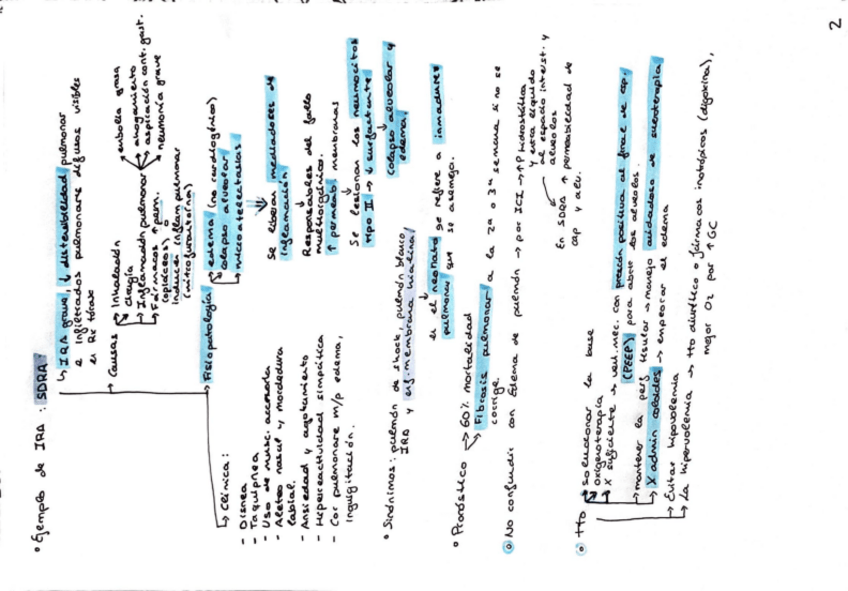 2
• Ejemplo de IRA : SDRA
↳ IRA grave, ↓ distensibilidad pulmonar
e infiltrados pulmonare difusos visibles
en Rx tórax
→ Causas
Inhalación
Cirugía
Inflamación pulmonar
embolia grasa
ahogamiento
aspiración cont. gast.
neumonía grave
Fármacos ↑ perm.
(opiáceos)
inducen inflam pulmonar
(nitrofurantoína)
→ Fisiopatología
edema (no cardiogénico)
colapso alveolar
microatelectasias
Se liberan mediadores de
inflamación
↓
Responsables del fallo
multiorgánico.
↑ permeab. membranas
↓
Se lesionan los neumocitos
tipo II → ↓ surfactante
↓
Colapso alveolar y
edema.
↳ Clínica :
- Disnea
- Taquipnea
- Uso de musc. accesoria
- Aleteo nasal y mordedura
labial.
- Ansiedad y agotamiento
- Hiperreactividad simpática
- Cor pulmonare m/p edema,
ingurgitación.
• Sinónimos : pulmón de shock, pulmón blanco,
IRA y enf. membrana hialina
↓
en el neonato se refiere a inmadurez
pulmonar que se asemeja.
• Pronóstico
→ 60% mortalidad
Fibrosis pulmonar a la 2ª o 3ª semana si no se
corrige.
No confundir con Edema de pulmón → por ICI → ↑P hidrostática
y entra líquido
al espacio interst. y
alveolos
En SDRA ↑ permeabilidad de
cap y alv.
Tto
Solucionar la base
oxigenoterapia
X suficiente → vent. mec. con presión positiva al final de esp.
(PEEP) para abrir los alveolos.
→ mantener la perf tisular → manejo cuidadoso de sueroterapia
X admin coloides → empeorar el edema
→ Evitar hipovolemia
→ La hipervolemia → tto diurético o fármacos inotrópicos (digoxina),
mejor O2 por ↑ GC